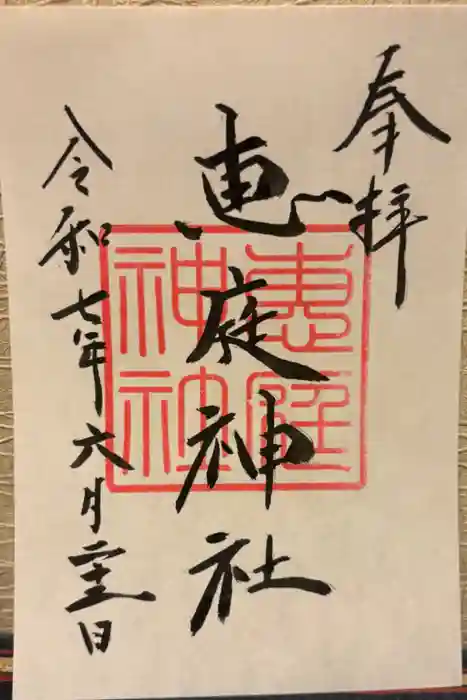 奉拝
恵庭神社
惠庭
神社
令和七年六月二十五日